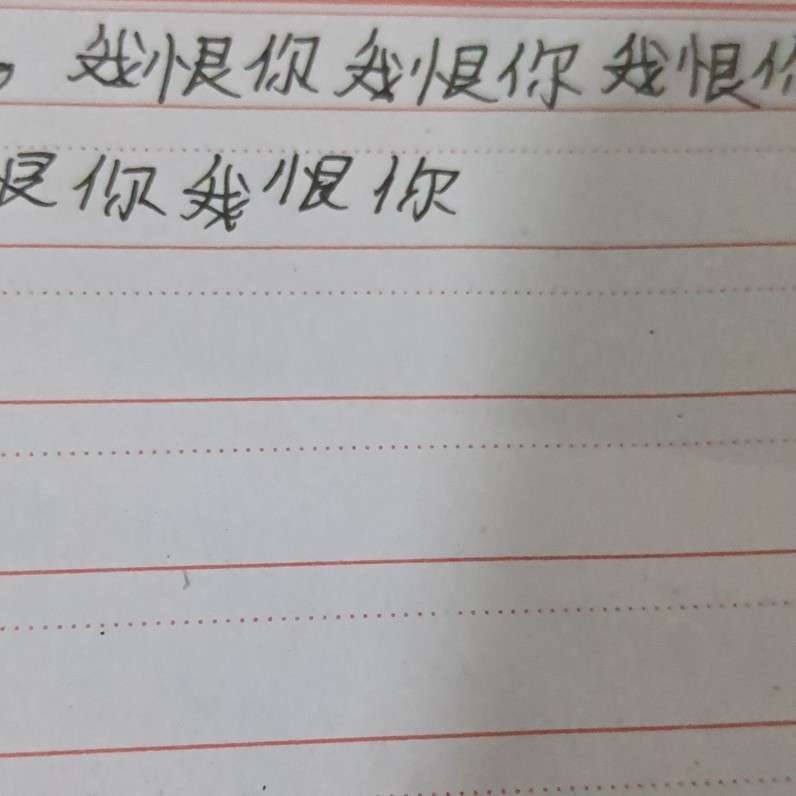 。我恨你我恨你我恨你
恨你我恨你